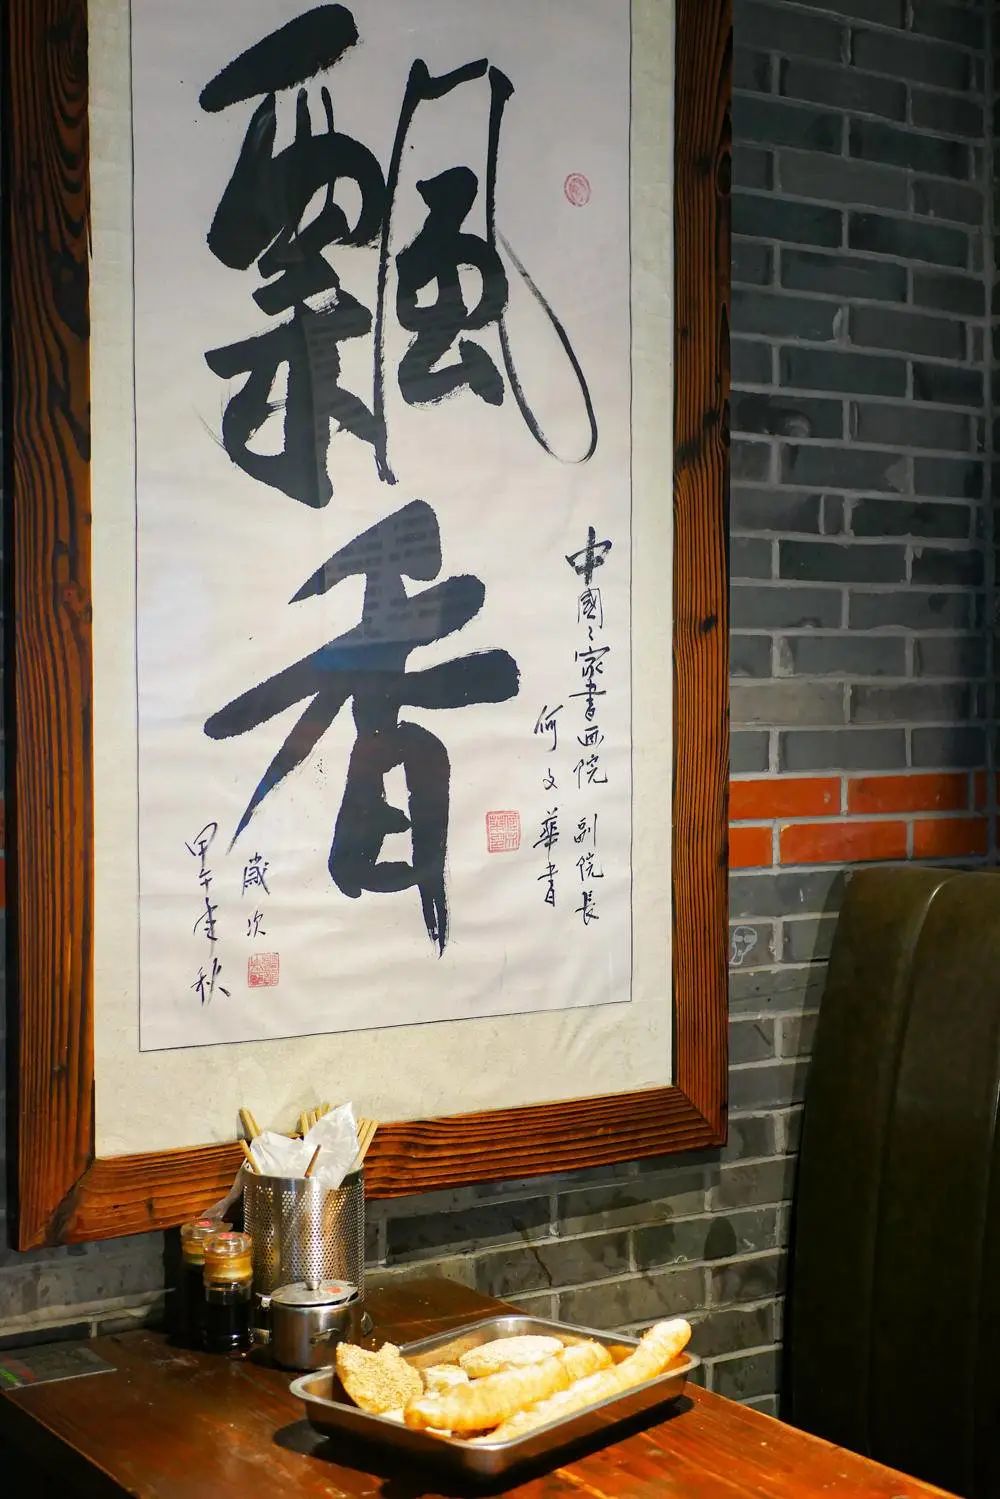 飄香
中國〻家書画院 副院長
何文華書
歲次
甲午年秋